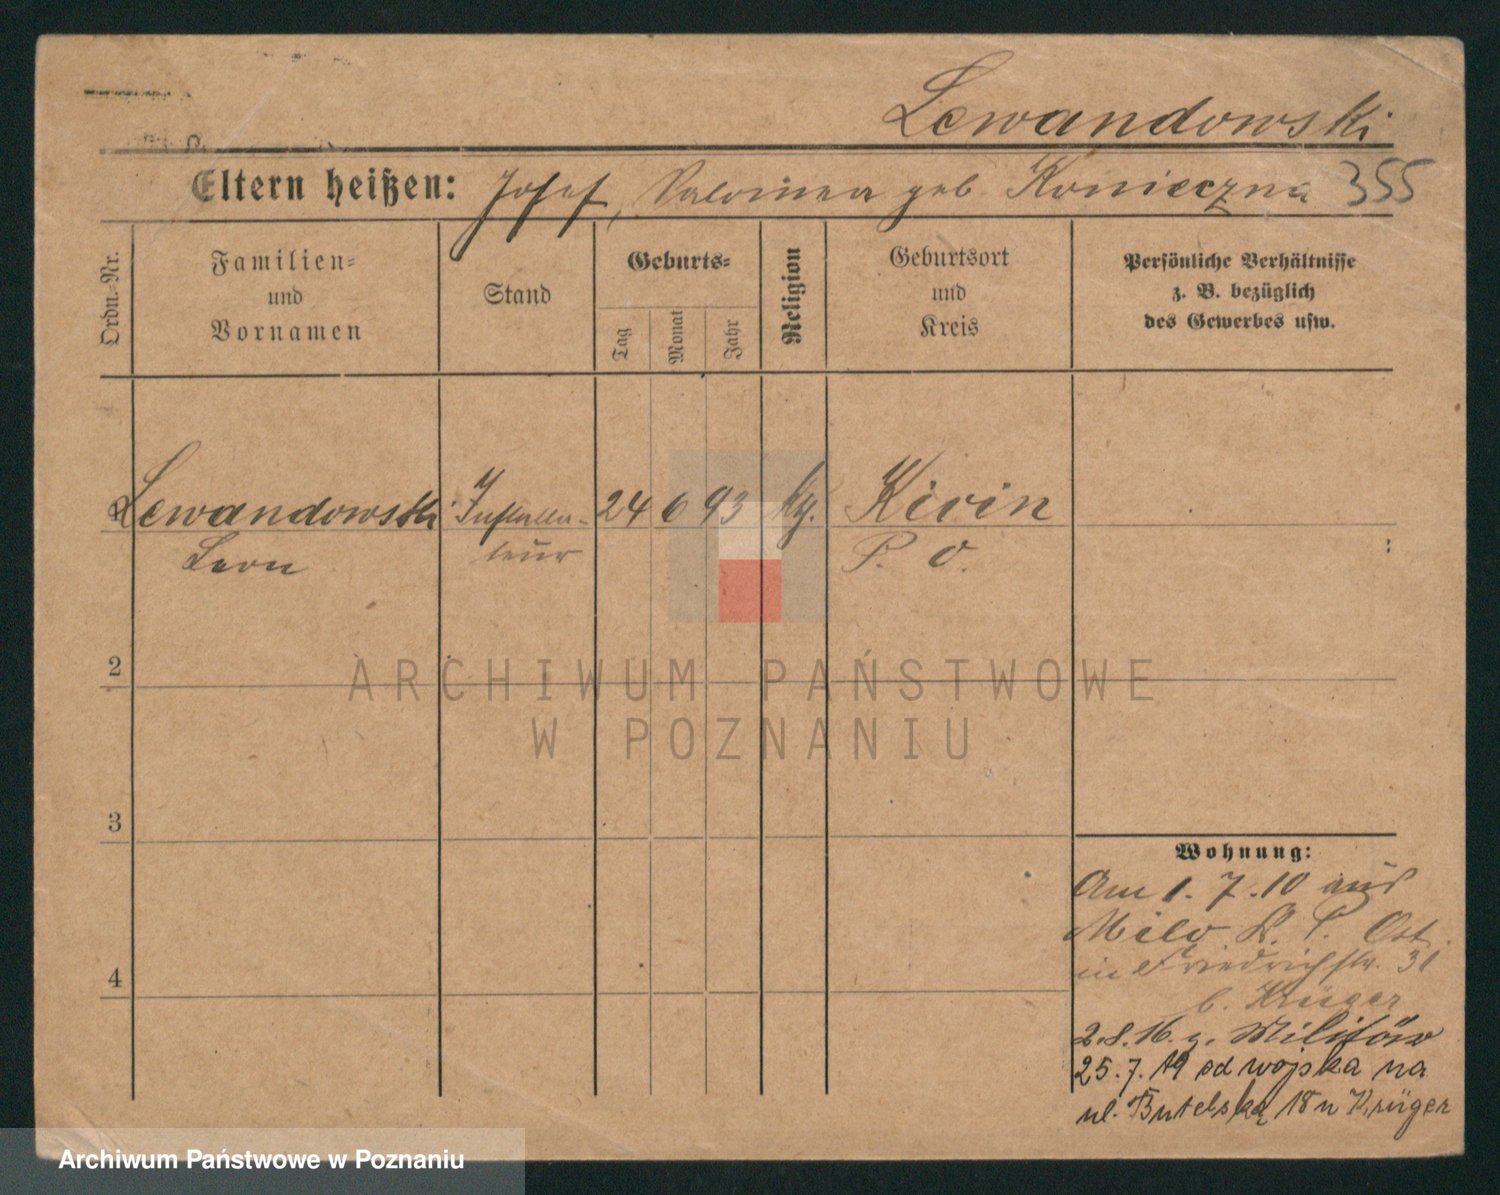 Lewandowski
Eltern heißen: Josef, Salomea geb. Konieczna 355
Ordn.-Nr.
Familien=
und
Vornamen
Stand
Geburts=
Tag
Monat
Jahr
Religion
Geburtsort
und
Kreis
Persönliche Verhältnisse
z. B. bezüglich
des Gewerbes usw.
1 Lewandowski Installa- 24 6 93 Kivin
Leon teur P. O.
2
3
4
Wohnung:
Am 1. 7. 10 aus
Milo K. P. Ost.
in Friedrichstr. 31
b. Krüger
2.8.16. z. Militär
25.7.19 od wojska na
ul. Butelską 18 u Krüger
ARCHIWUM PAŃSTWOWE
W POZNANIU
Archiwum Państwowe w Poznaniu